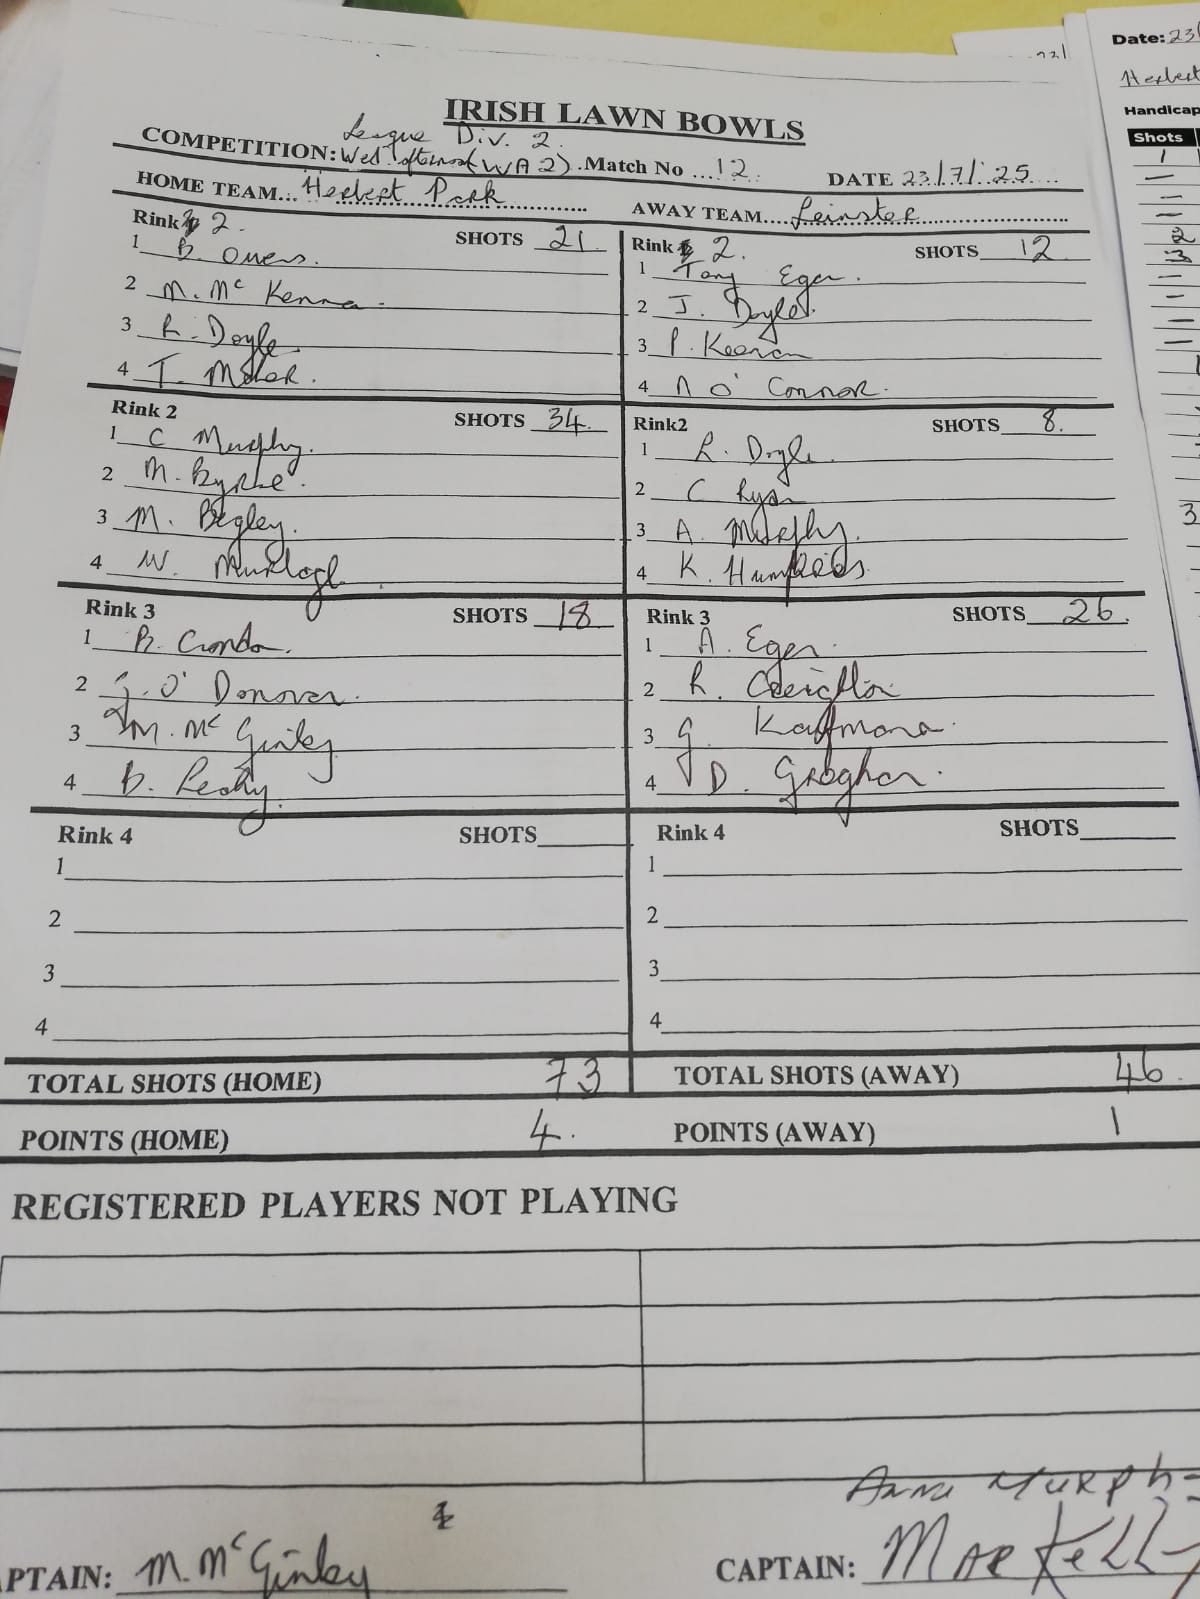 Date: 23/
Herbert
Handicap
Shots
1
2
3
3
IRISH LAWN BOWLS
League Div. 2.
COMPETITION: Wed afternoon (WA2). Match No ... 12 . DATE 23/7/'25
HOME TEAM... Herbert Park AWAY TEAM.... Leinster
Rink 2. SHOTS 21
1 B. Owens.
2 M. Mc Kenna
3 R. Doyle
4 T.
Rink 2. SHOTS 12
1 Tony Egan.
2 J. Doyle
3 P. Keenan
4 N O' Connor.
Rink 2 SHOTS 34
1 C Murphy.
2 M. Byrne
3 M. Begley.
4 W. Murtagh
Rink2 SHOTS 8.
1 R. Doyle
2 C Ryan
3 A. Murphy.
4 K.
Rink 3 SHOTS 18
1 B.
2 O' Donovan.
3 M. Mc Ginley
4 B. Leahy.
Rink 3 SHOTS 26
1 A. Egan
2 R. Creighton
3 G. Kauffmann
4 D. Groghan.
Rink 4 SHOTS
1
2
3
4
Rink 4 SHOTS
1
2
3
4
TOTAL SHOTS (HOME) 73 TOTAL SHOTS (AWAY) 46
POINTS (HOME) 4. POINTS (AWAY) 1
REGISTERED PLAYERS NOT PLAYING
Anne Murphy
PTAIN: M. Mc Ginley CAPTAIN: